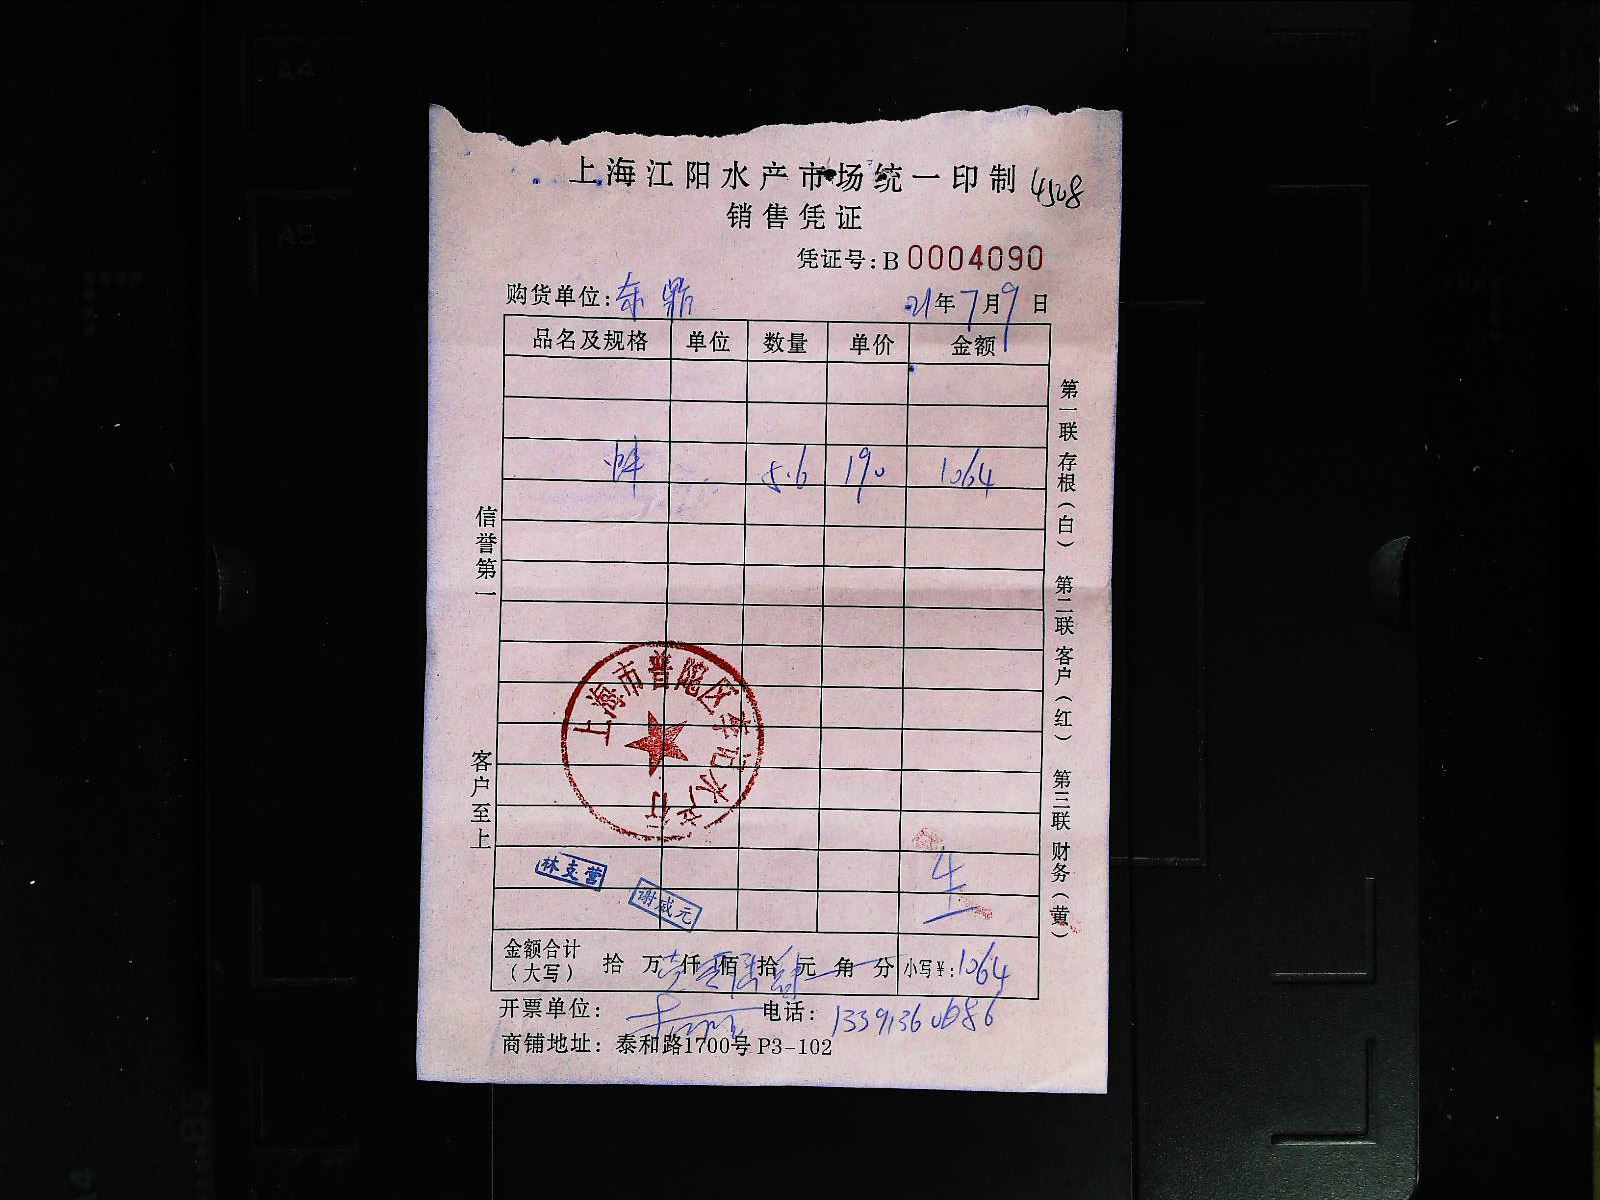 上海江阳水产市场统一印制 4508
销售凭证
凭证号: B 0004090
购货单位: 东鼎 21年7月9日
品名及规格 单位 数量 单价 金额
蚌 5.6 190 1064
信誉第一
客户至上
第一联 存根（白） 第二联 客户（红） 第三联 财务（黄）
上海市普陀区李记水产行
林支营
谢成元
生
金额合计（大写） 拾 万 仟 佰 拾 元 角 分 小写¥: 1064
开票单位: 电话: 13391360686
商铺地址: 泰和路1700号 P3-102